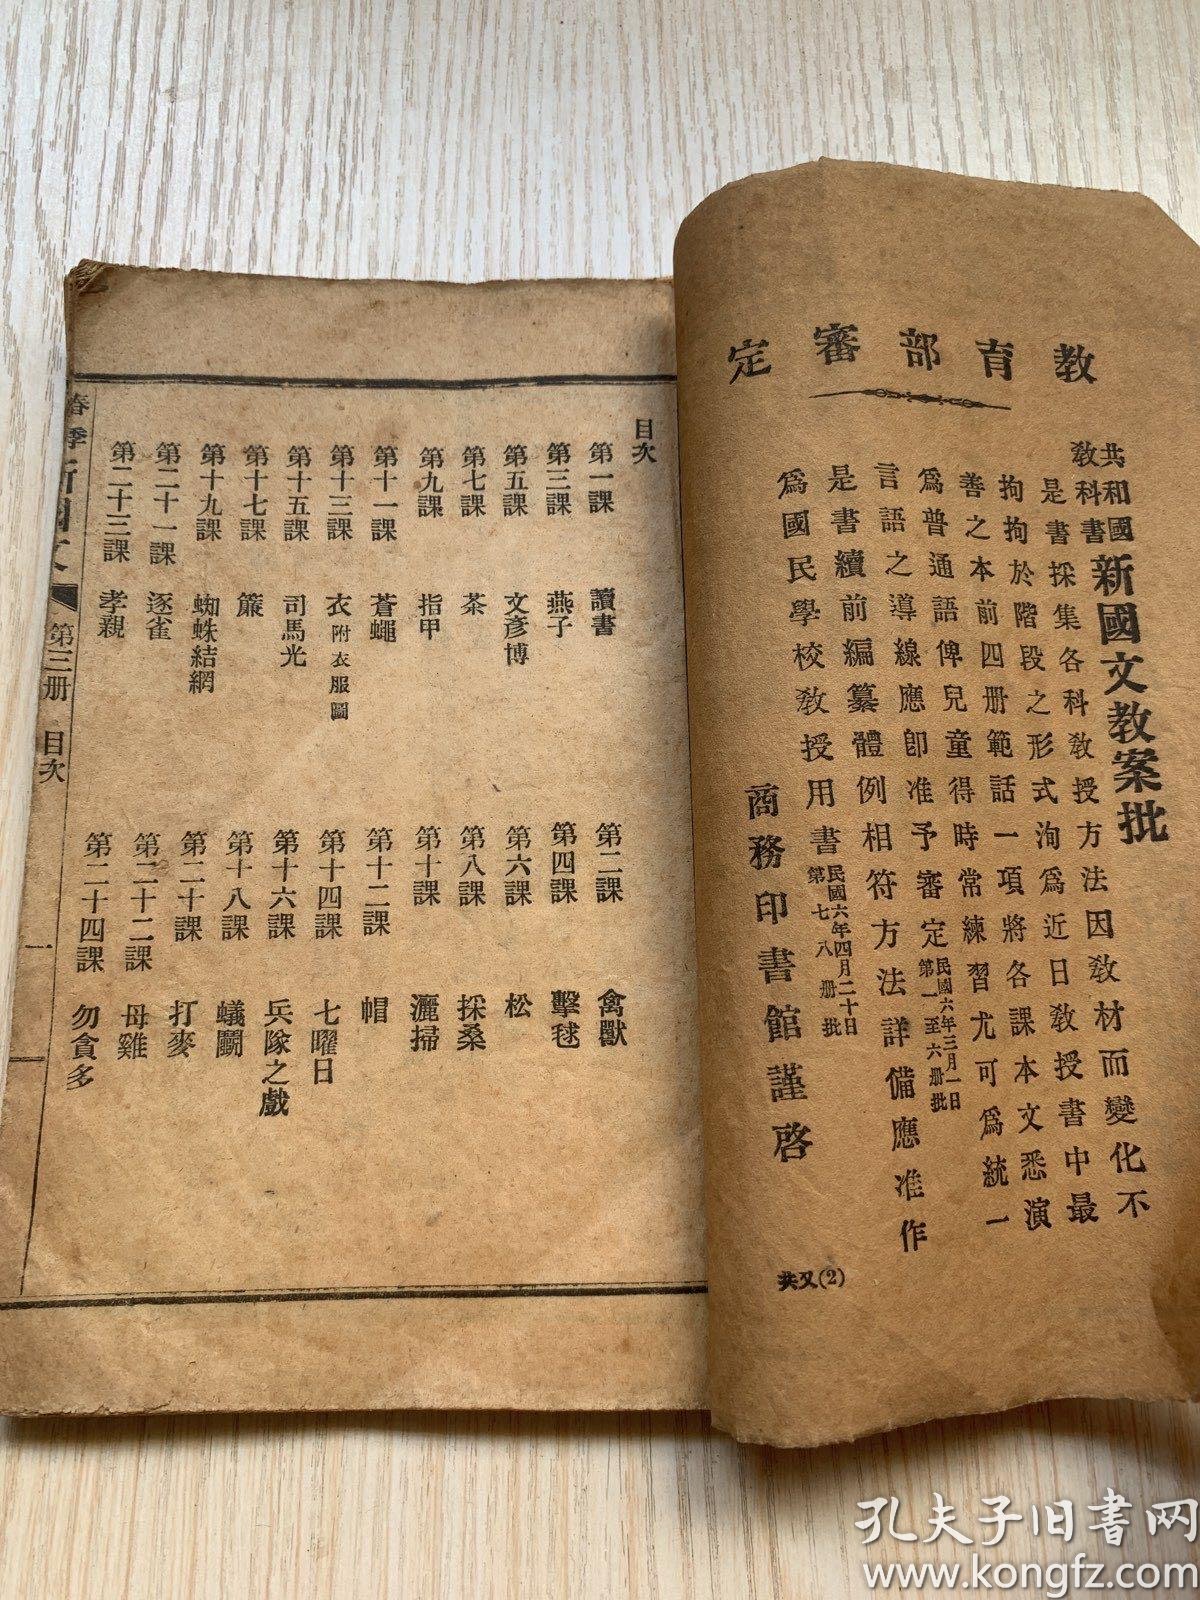 教育部審定
共和國教科書 新國文教案批
是書採集各科教授方法因教材而變化不
拘拘於階段之形式洵為近日教授書中最
善之本前四册範話一項將各課本文悉演
爲普通語俾兒童得時常練習尤可爲統一
言語之導線應卽准予審定 民國六年三月一日第一至六册批
是書續前編纂體例相符方法詳備應准作
爲國民學校教授用書 民國六年四月二十日第七八册批
商務印書館謹啓
共又(2)
目次
第一課 讀書
第二課 禽獸
第三課 燕子
第四課 擊毬
第五課 文彥博
第六課 松
第七課 茶
第八課 採桑
第九課 指甲
第十課 灑掃
第十一課 蒼蠅
第十二課 帽
第十三課 衣 附衣服圖
第十四課 七曜日
第十五課 司馬光
第十六課 兵隊之戲
第十七課 簾
第十八課 蟻鬬
第十九課 蜘蛛結網
第二十課 打麥
第二十一課 逐雀
第二十二課 母雞
第二十三課 孝親
第二十四課 勿貪多
春季新國文 第三册 目次 一
孔夫子旧书网
www.kongfz.com